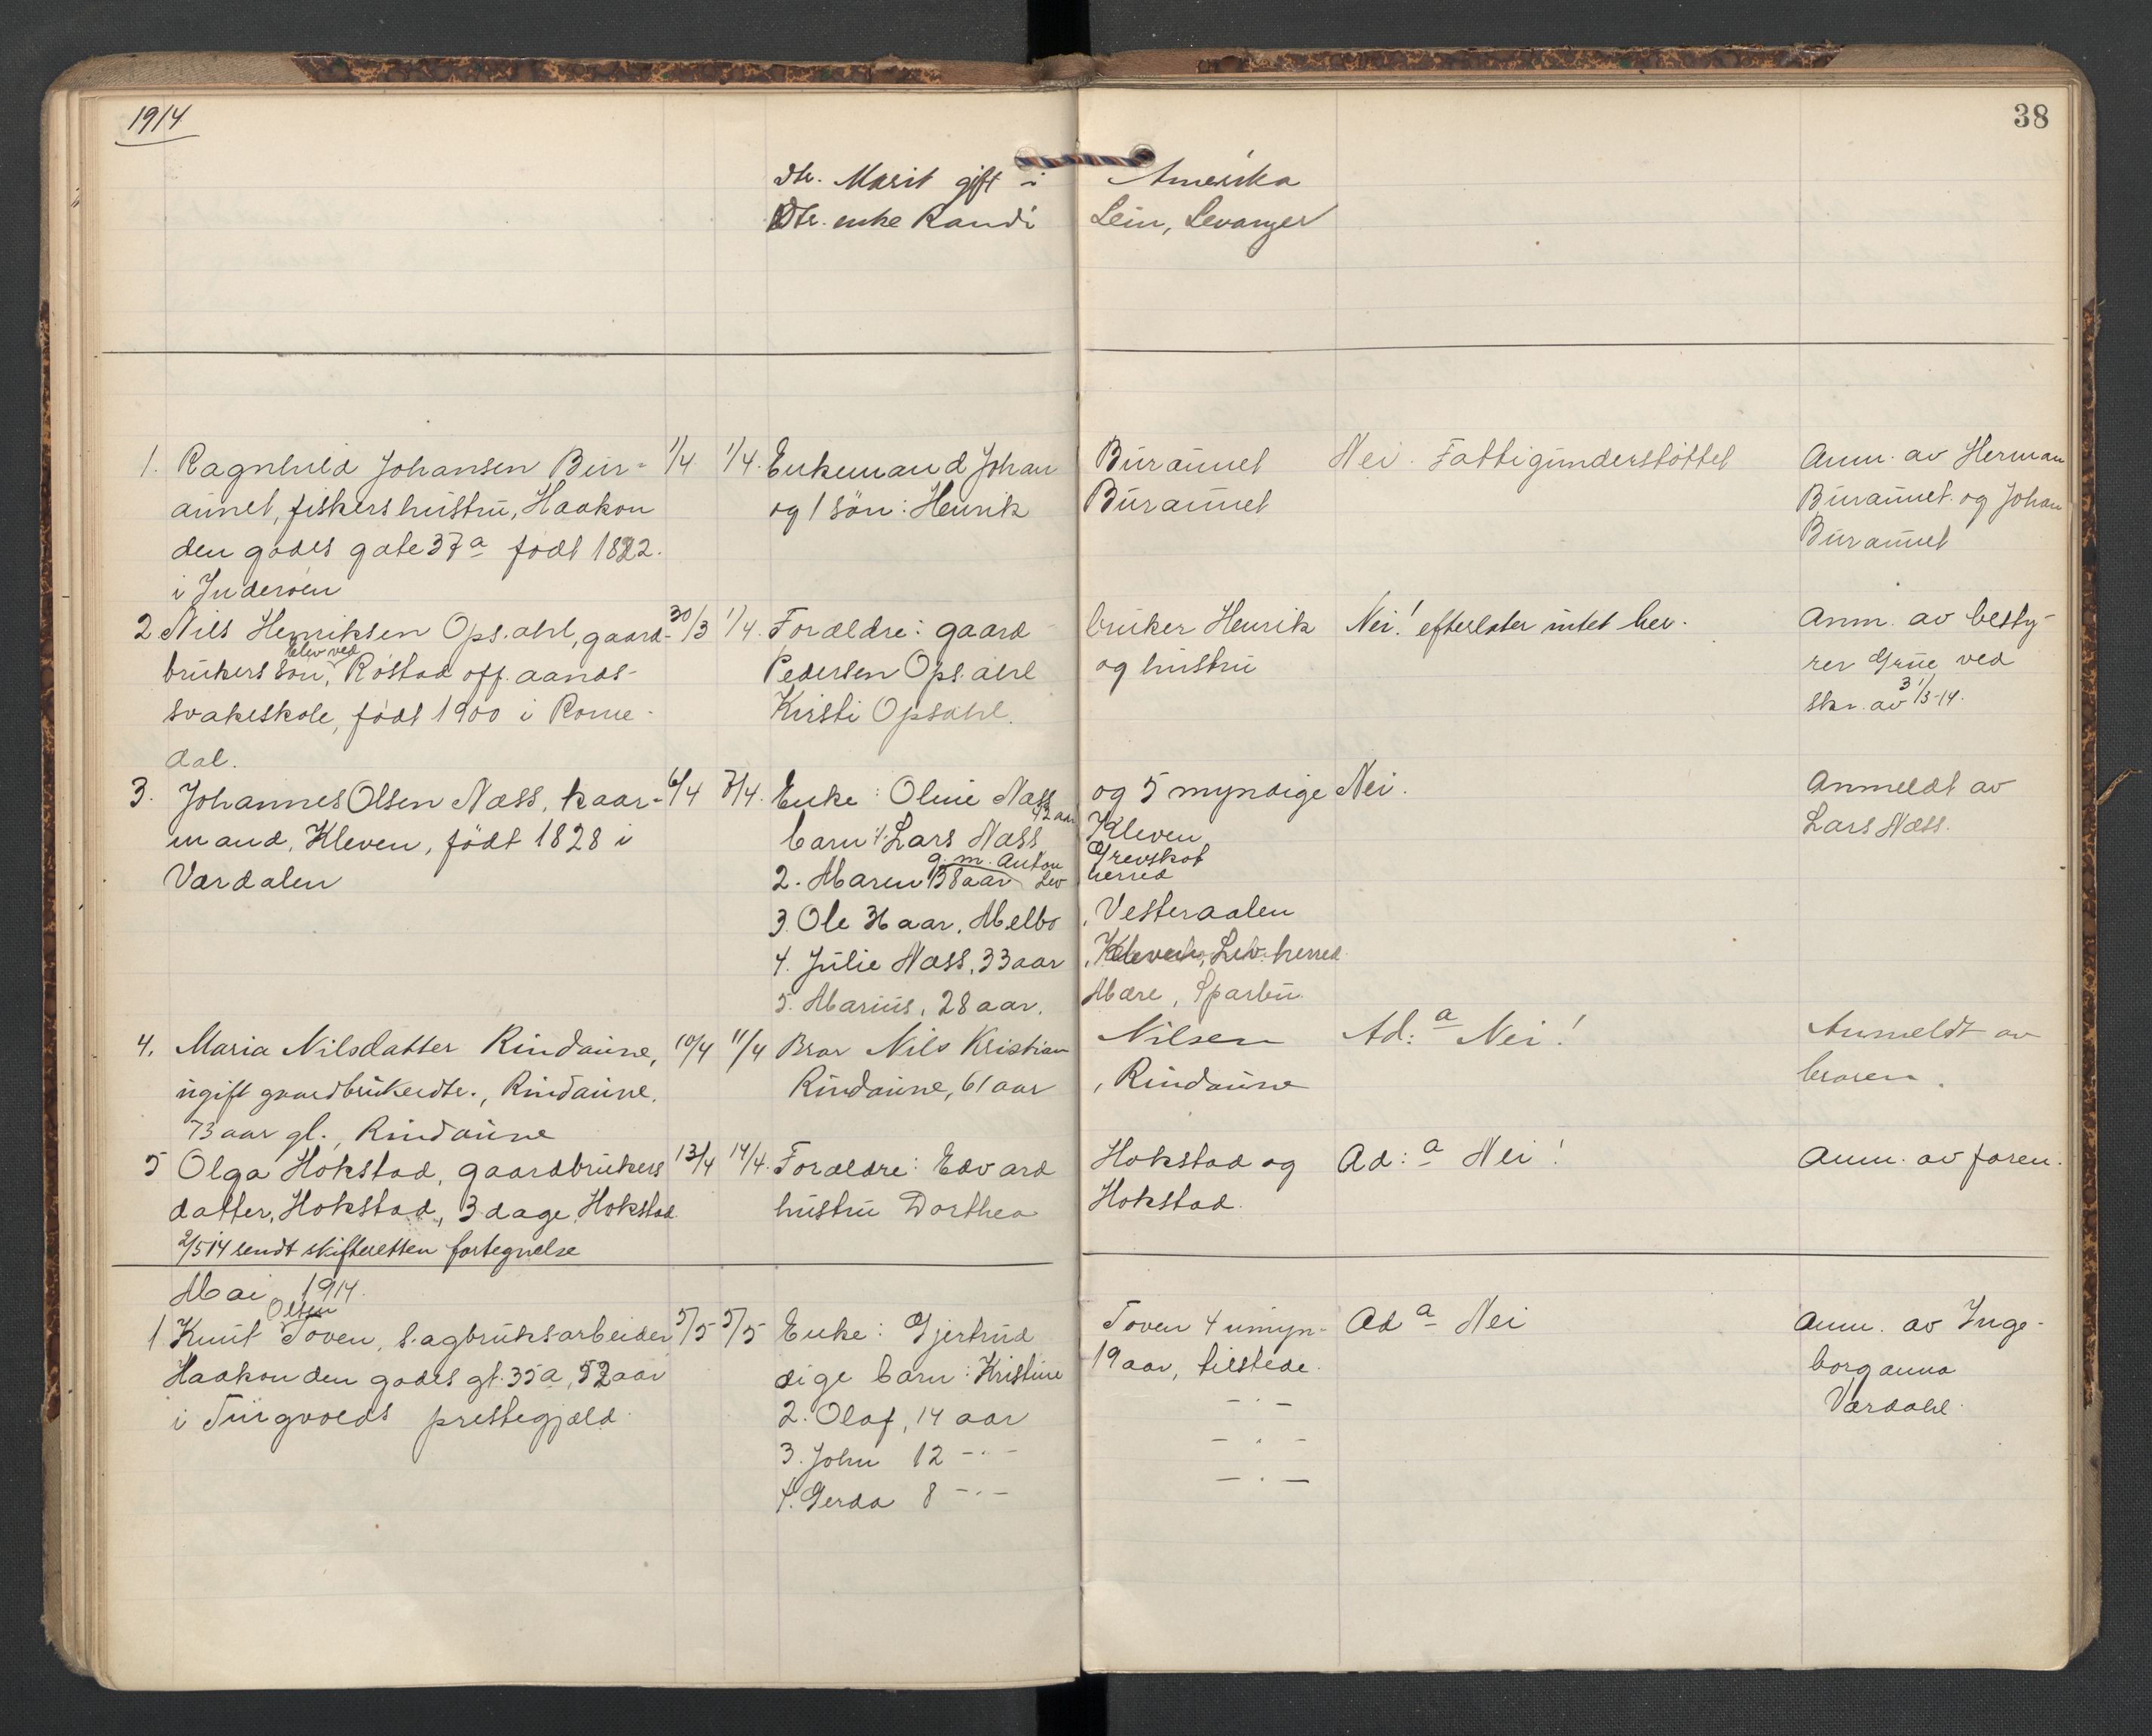 1914
38
dtr. Marit gift i Amerika
Dtr. enke Randi Lein, Levanger
1. Ragnhild Johansen Bur- 1/4 1/4. Enkemand Johan Buraunet Nei. Fattigunderstøttet Anm. av Herman
aunet, fiskers hustru, Haakon og 1 søn: Henrik Buraunet Buraunet og Johan
den godes gate 37a født 1882. Buraunet
i Inderøen
2 Nils Henriksen Opsahl, gaard- 30/3 1/4. Forældre: gaard bruker Henrik Nei! efterlater intet her. Anm. av besty-
elev ved
brukers søn, Røstad off. aands- Pedersen Opsahl og hustru rer Grue ved
svakeskole, født 1900 i Rome- Kirsti Opsahl. skr. av 31/3-14.
dal.
3. Johannes Olsen Næss, kaar- 6/4 7/4. Enke: Oline Næss og 5 myndige Nei. Anmeldt av
42 aar
mand, Kleven, født 1828 i barn: 1. Lars Næss Kleven Lars Næss.
g. m. Anton Grevskot
Værdalen 2. Maren 38 aar Lev herred
3. Ole 36 aar, Melbo, Vesteraalen
4. Julie Næss, 33 aar, Kleven, Lev. herred.
5. Marius, 28 aar. Mære, Sparbu.
4. Maria Nilsdatter Rindaune, 10/4 11/4 Bror Nils Kristian Nilsen Ad: a Nei! Anmeldt av
ugift gaardbrukerdtr., Rindaune. Rindaune, 61 aar, Rindaune broren.
73 aar gl., Rindaune
5 Olga Hokstad, gaardbrukers 13/4 14/4. Forældre: Edvard Hokstad og Ad: a Nei! Anm. av faren.
datter, Hokstad, 3 dage, Hokstad hustru Dorthea Hokstad.
2/5 14 sendt skifteretten fortegnelse
Mai 1914.
Olsen
1 Knut Toven, sagbruksarbeider 5/5 5/5 Enke: Gjertrud Toven 4 umyn- Ad a Nei Anm. av Inge-
Haakon den godes gt. 35a, 52 aar dige barn: Kristine 19 aar, tilstede. borg anna
i Tingvolds prestegjæld. 2. Olaf, 14 aar -.- Værdahl.
3. John 12 -.- -.-
4. Gerda 8 -.- -.-